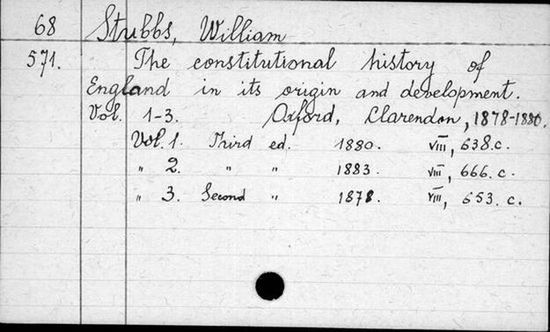 68 Stubbs, William
571. The constitutional history of
England in its origin and development.
Vol. 1-3. Oxford, Clarendon, 1878-1880.
Vol. 1. Third ed. 1880. VIII, 638. c.
" 2. " " 1883. VIII, 666. c.
" 3. Second " 1878. VIII, 653. c.